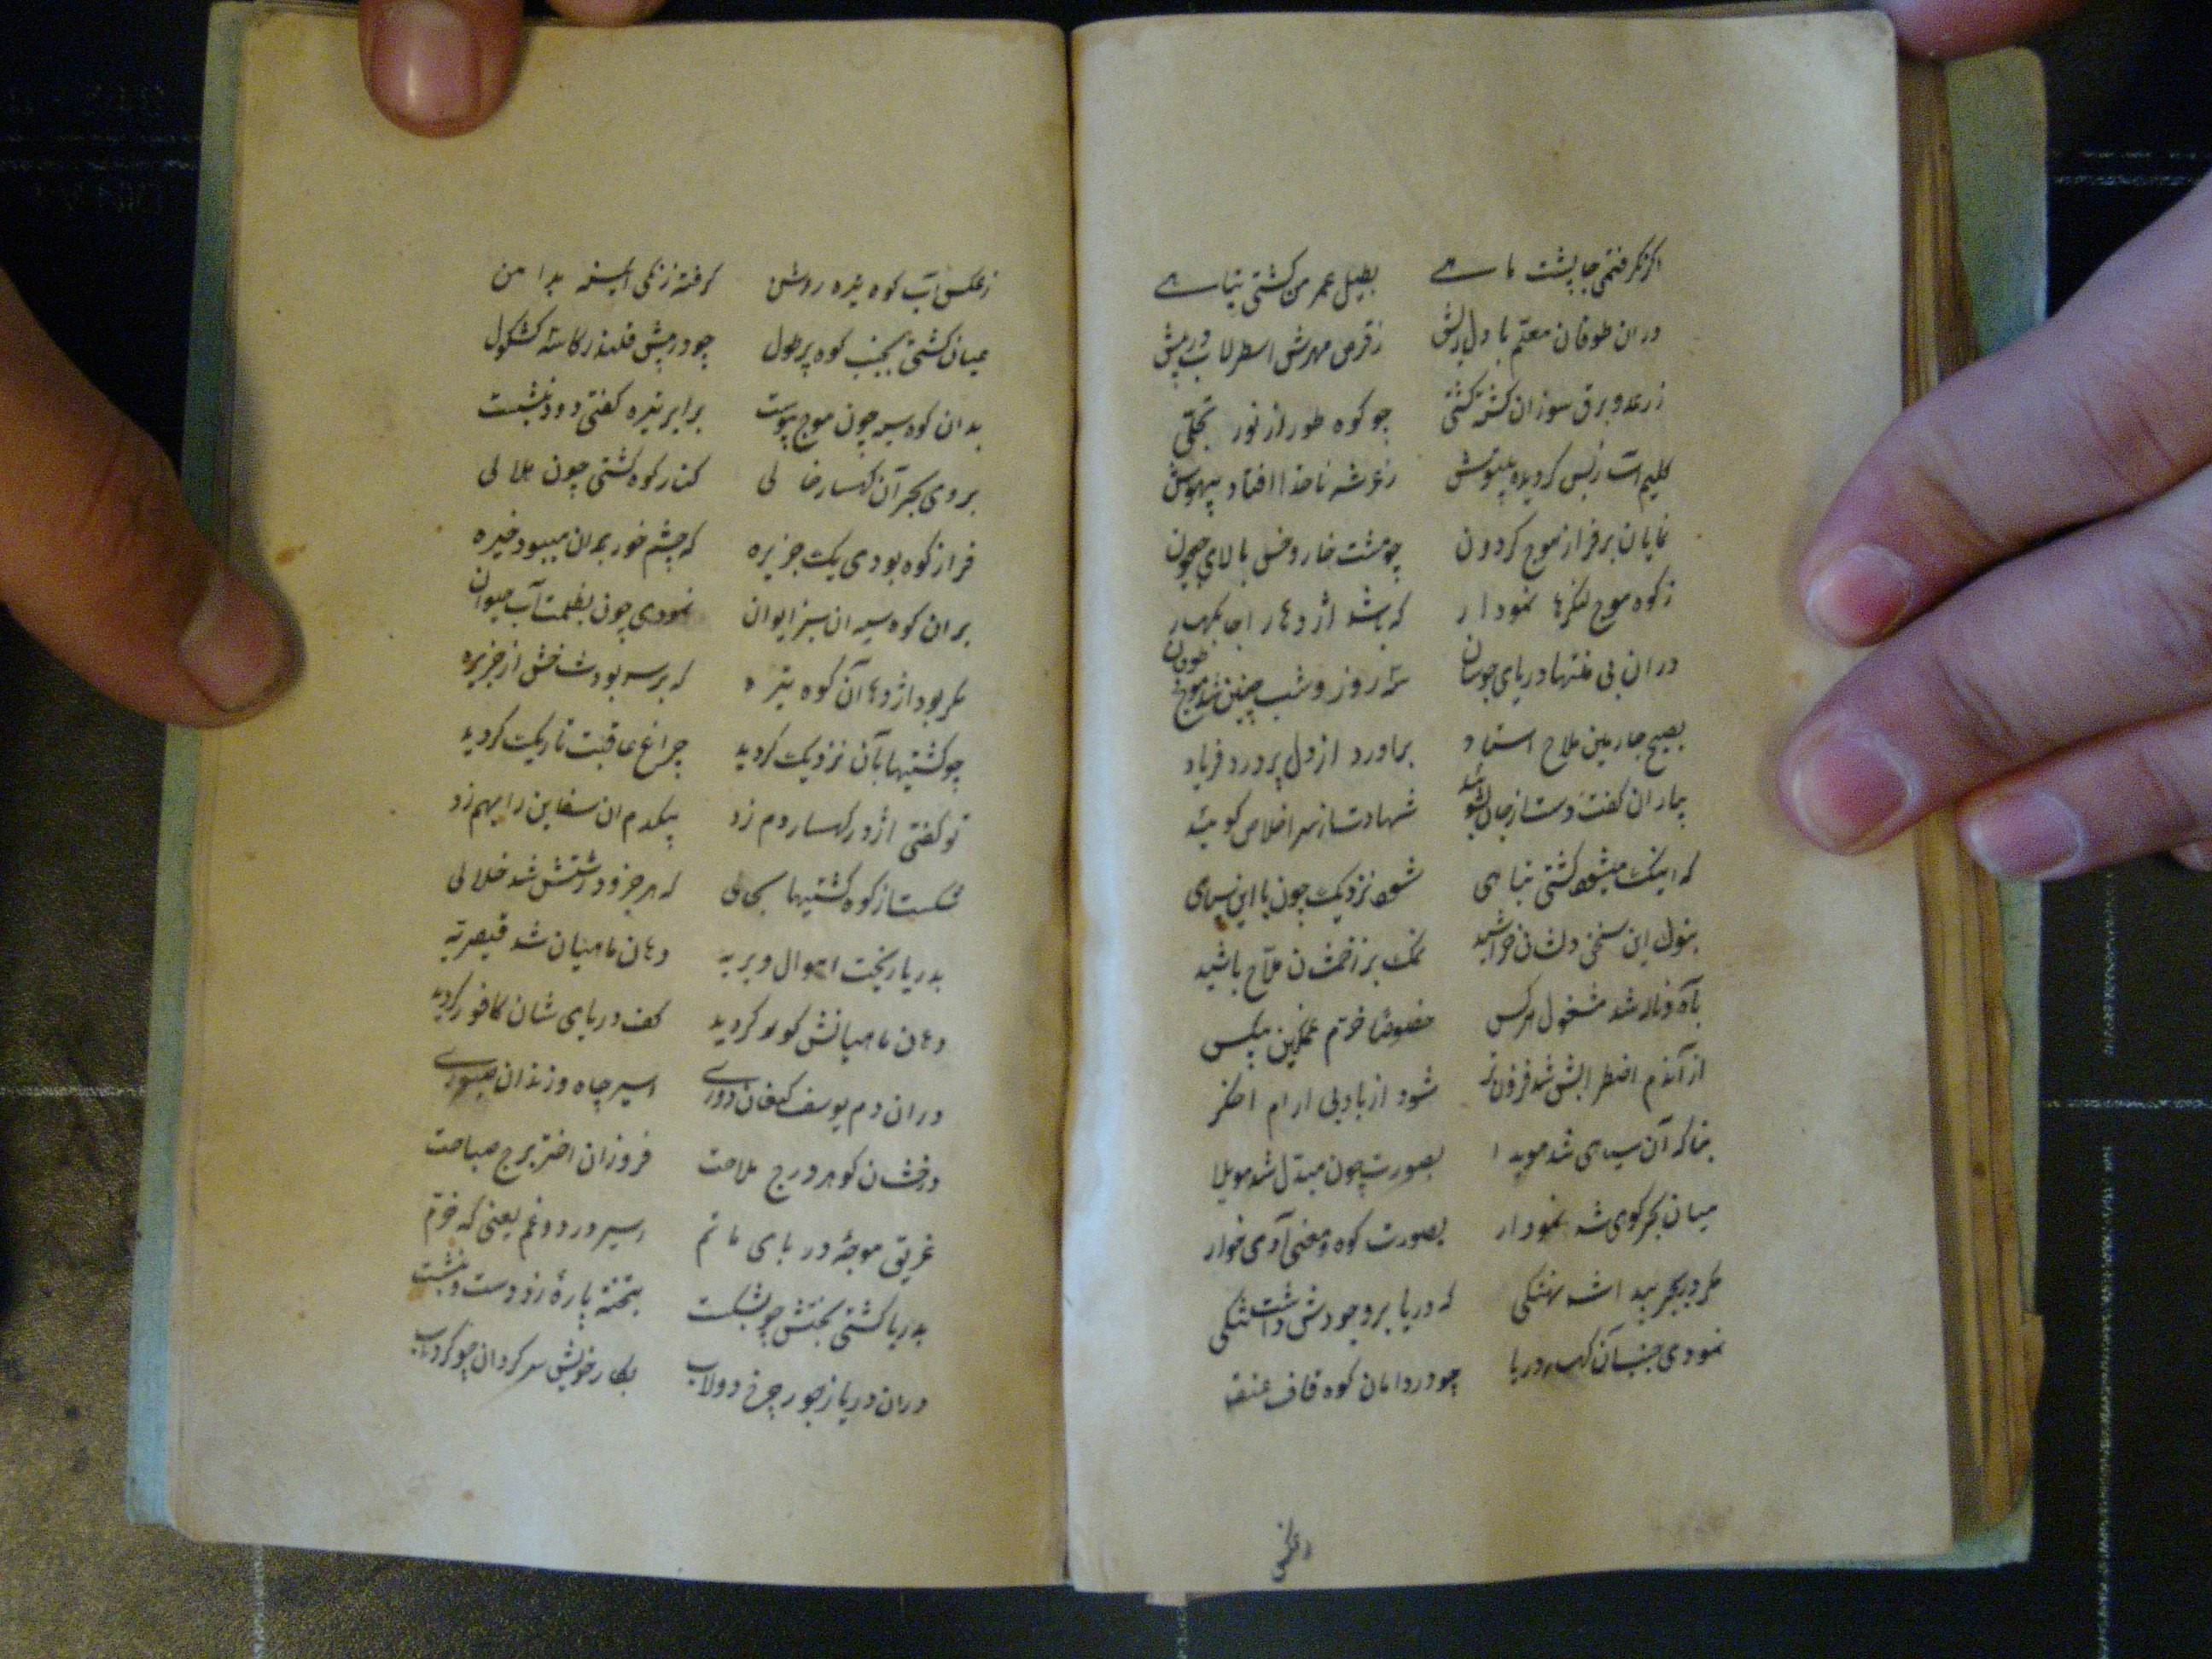 اگر نگرفتمی جا پشت ماهے بطیل عمر من کشتی تباهے
دران طوفان معلم با دل ریش ز قرص مهرش اسطرلاب در پیش
ز رعد و برق سوزان کشته کشتی چو کوه طور از نور تجلی
کلیم است زبس کردیده ز رعشه ناخدا افتاد بیهوش
نمایان بر فراز موج کردون چو مشت خار و خس بالای جیحون
ز کوه موج لنگرها نمودار که باشد اژدها را جا بکهسار
دران بی منتها دریای جوشان سه روز و شب چنین شد موج طوفان
بصبح چارمین ملاح استاد براورد از دل پر درد فریاد
بیاران کفت دست از جان بشوئید شهادت از سر اخلاص کوئید
که اینک میشود کشتی تباهی شود نزدیک چون با این سیاهی
بنوک این سخن دلشان خراشید نمک بر زخمشان ملاح پاشید
بآه و ناله شد مشغول هر کس خصوصا خرم غمکین بیکس
از آندم اضطرابش شد فزون تر شود از باد بی ارام اخکر
چنا که آن سیاهی شد هویدا بصورت چون مبدل شد هویلا
میان بحر کوهی شد نمودار بصورت کوه و معنی آدمی خوار
مکر در بحر پیدا شد نهنکی که دریا بر وجودش داشت تنکی
نمودی جنب آن کهسار دریا چو در دامان کوه قاف عنقا
ز عکس
ز عکس آب کوه تیره روشن کرفته زنکی آئینه بدامن
میان کشتی بجنب کوه پر طول چو در پیش قلندر کاسه کشکول
بدان کوه سیه چون موج پیوست برابر تیره کفتی دود بنشست
بروی بحر آن کهسار خالی کنار کوه کشتی چون هلالی
فراز کوه بودی یک جزیره که چشم خور بدان میبود خیره
بران کوه سیه ان سبز ایوان نمودی چون بظلمت آب حیوان
مکر بود اژدها آن کوه تیره که بر سر بود شاخش از جزیره
چو کشتیها بآن نزدیک کردید چراغ عاقبت تاریک کردید
تو کفتی اژدر کهسار دم زد بیکدم ان سفاین را بهم زد
شکست از کوه کشتیها بحالی که هر جزو درشتش شد خلالی
بدریا ریخت اموال و بریه دهان ماهیان شد قیصریه
دهان ماهیانش کور کردید کف دریای شان کافور کردید
دران دم یوسف کنعان دورے اسیر چاه و زندان صبورے
درخشان کوهر درج ملاحت فروزان اختر برج صباحت
غریق موجهٔ دریای ماتم اسیر درد و غم یعنی که خرم
بدریا کشتی بختش چو بشکست بتخته پارهٔ زد دست و بنشست
دران دریا ز جور چرخ دولاب بکار خویش سرکردان چو کرداب